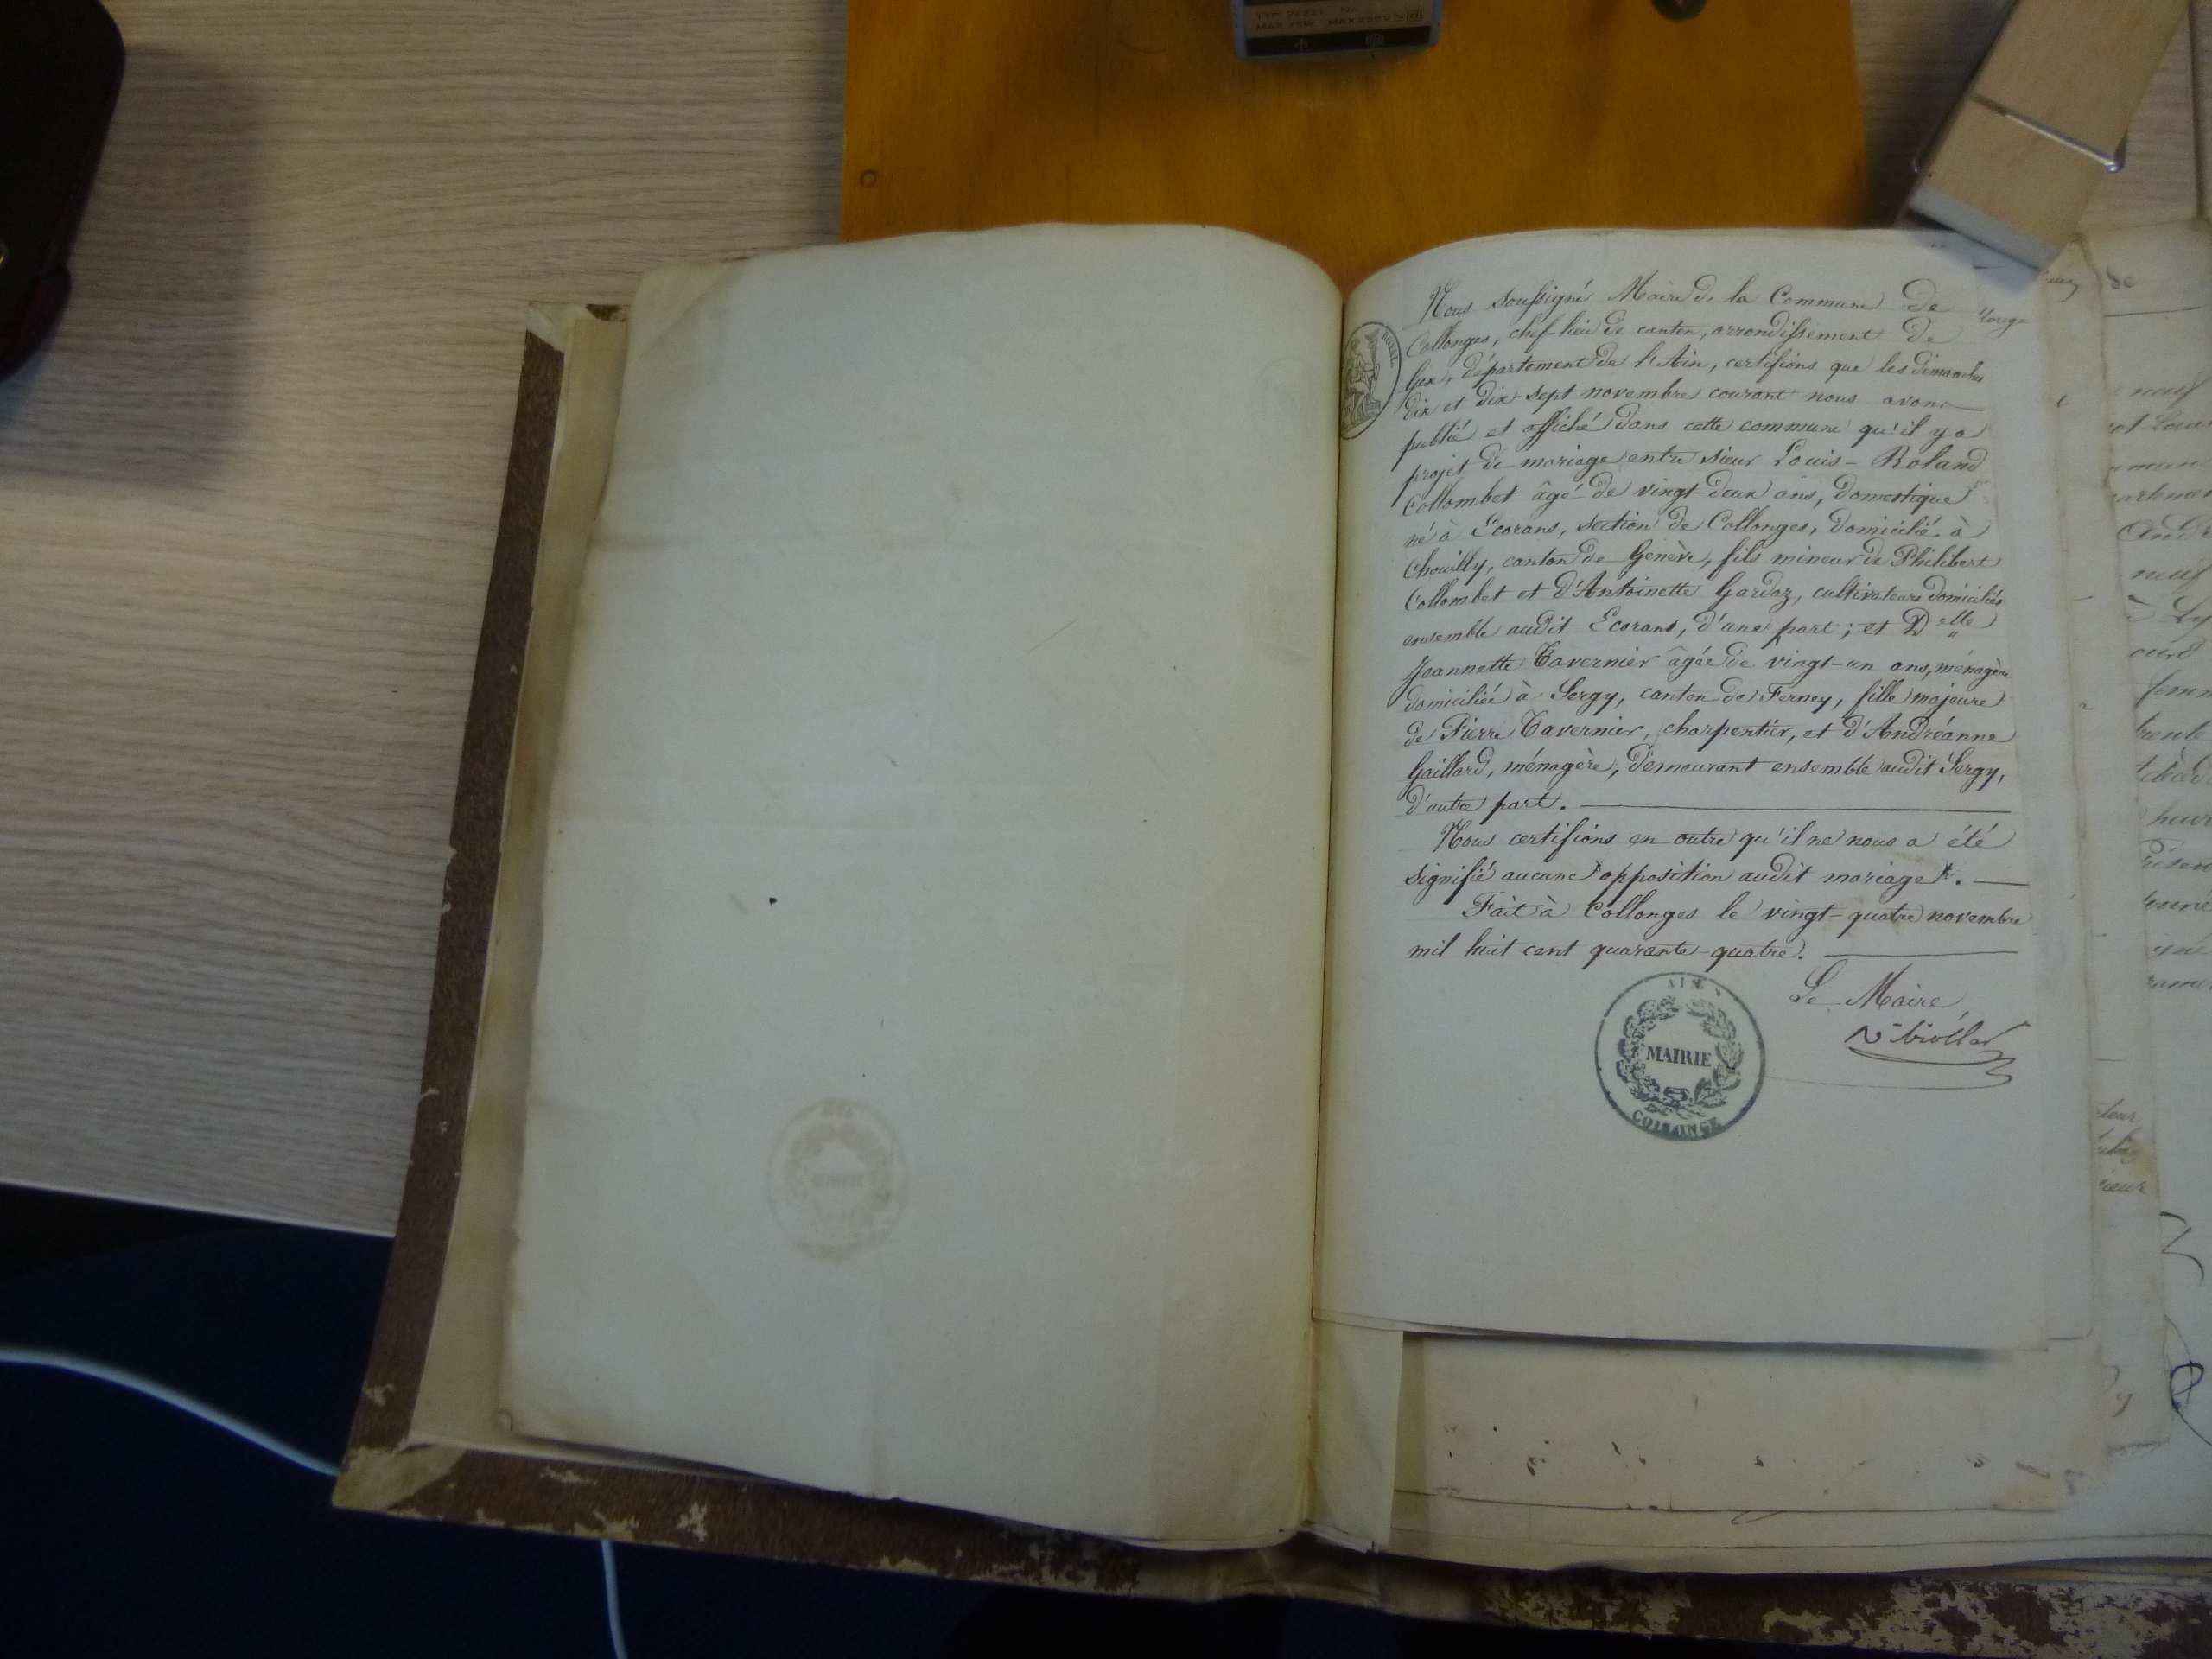 Nous soussigné Maire de la Commune de
Collonges, chef-lieu de canton, arrondissement de
Gex, département de l'Ain, certifions que les dimanches
dix et dix sept novembre courant nous avons
publié et affiché dans cette commune qu'il y a
projet de mariage entre sieur Louis-Roland
Collombet âgé de vingt-deux ans, domestique
né à Ecorans, section de Collonges, domicilié à
Chouilly, canton de Genève, fils mineur de Philibert
Collombet et d'Antoinette Gardaz, cultivateurs domiciliés
ensemble audit Ecorans, d'une part ; et Delle
Jeannette Tavernier âgée de vingt-un ans, ménagère
domiciliée à Sergy, canton de Ferney, fille majeure
de Pierre Tavernier, charpentier, et d'Andréanne
Gaillard, ménagère, demeurant ensemble audit Sergy,
d'autre part.
Nous certifions en outre qu'il ne nous a été
signifié aucune opposition audit mariage.
Fait à Collonges le vingt-quatre novembre
mil huit cent quarante-quatre.
Le Maire,
ROYAL
AIN
MAIRIE
DE
COLLONGE
de
neuf
neuf